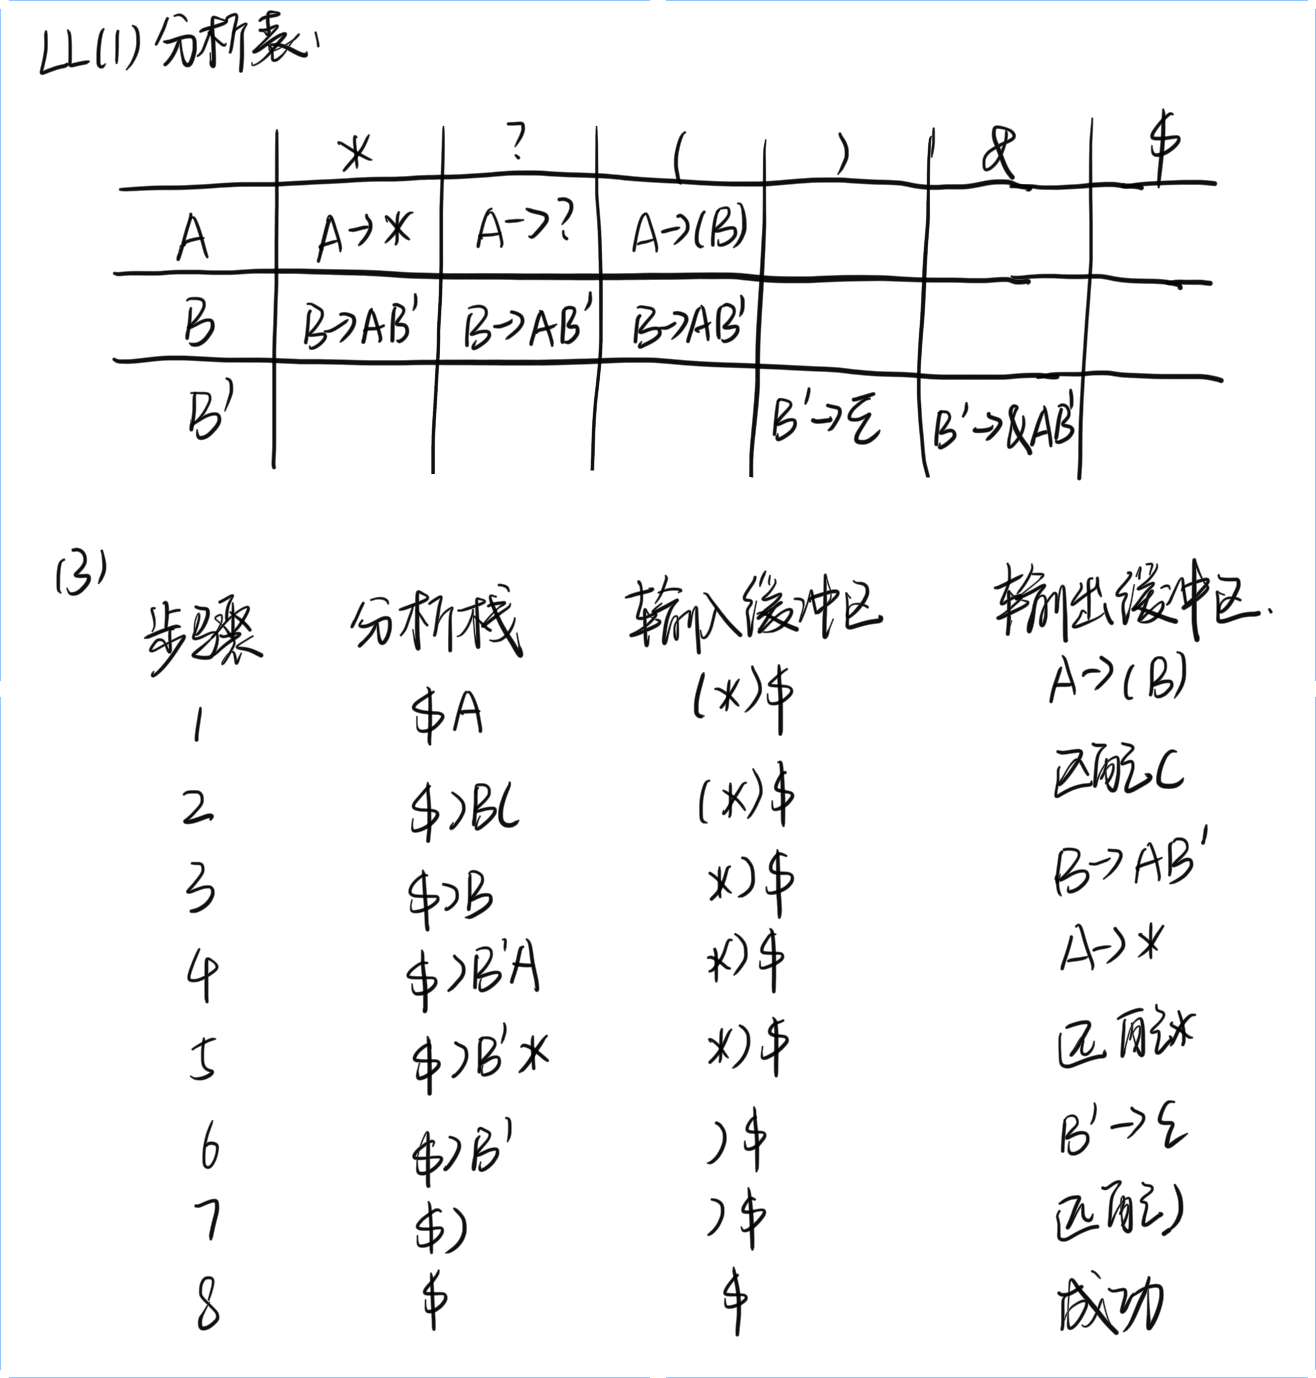 LL(1)分析表.
* ? ( ) & $
A A→* A→? A→(B)
B B→AB' B→AB' B→AB'
B' B'→ε B'→&AB'
(3)
步骤 分析栈 输入缓冲区 输出缓冲区.
1 $A (*)$ A→(B)
2 $)B( (*)$ 匹配(
3 $)B *)$ B→AB'
4 $)B'A *)$ A→*
5 $)B'* *)$ 匹配*
6 $)B' )$ B'→ε
7 $) )$ 匹配)
8 $ $ 成功